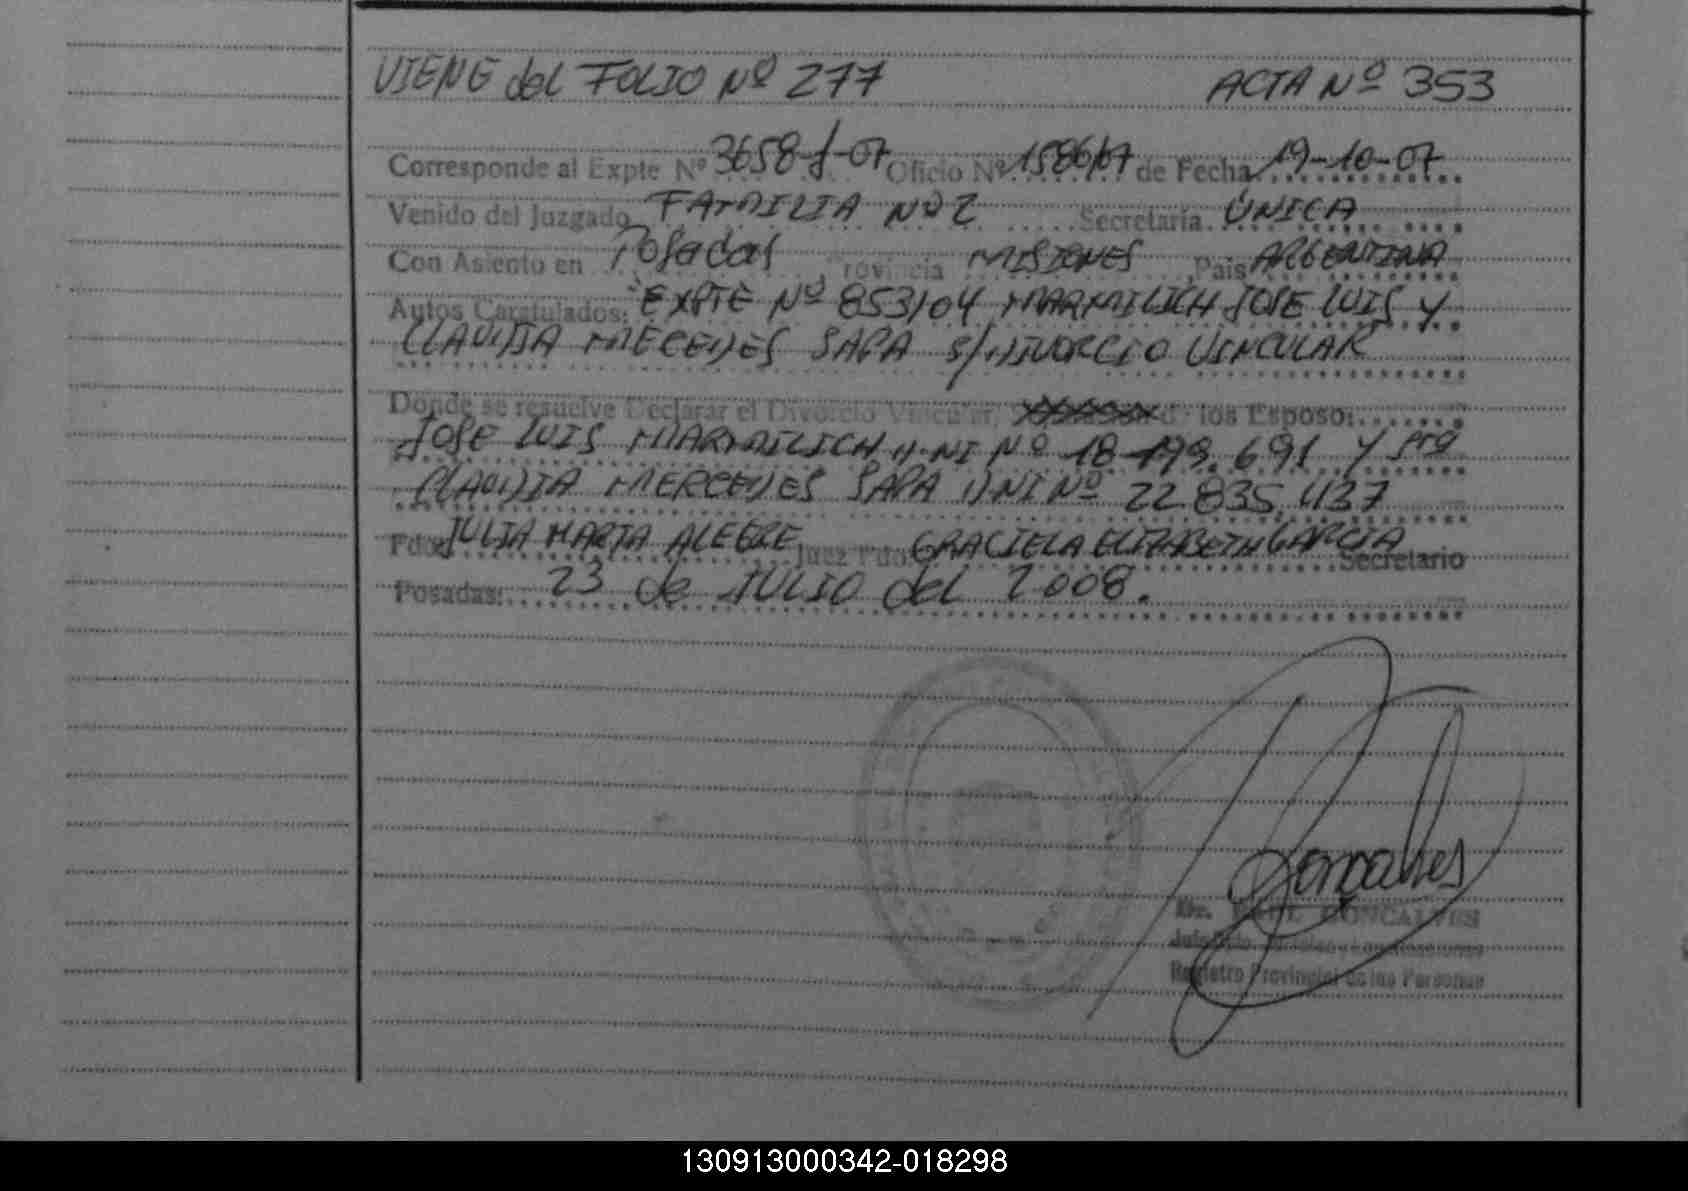 VIENE del FOLIO Nº 277 ACTA Nº 353
Corresponde al Expte Nº 3658-f-07 Oficio Nº 1586/07 de Fecha 19-10-07
Venido del Juzgado FAMILIA Nº 2 Secretaría ÚNICA
Con Asiento en Posadas, Provincia MISIONES, Pais ARGENTINA
Autos Caratulados: "EXPTE Nº 853/04 MARMILICH JOSE LUIS y
CLAUDIA MECEDES SAPA S/DIVORCIO VINCULAR
Donde se resuelve Declarar el Divorcio Vincular, los Esposo:
JOSE LUIS MARMILICH DNI Nº 18.199.691 y
CLAUDIA MERCEDES SAPA DNI Nº 22.835.437
Fdo: JULIA MARTA ALEGRE Juez Fdo: GRACIELA ELIZABETH GARCIA Secretario
Posadas: 23 de JULIO del 2008.
Gonçalves
Dr. RAUL GONCALVES
Registro Provincial de las Personas
130913000342-018298